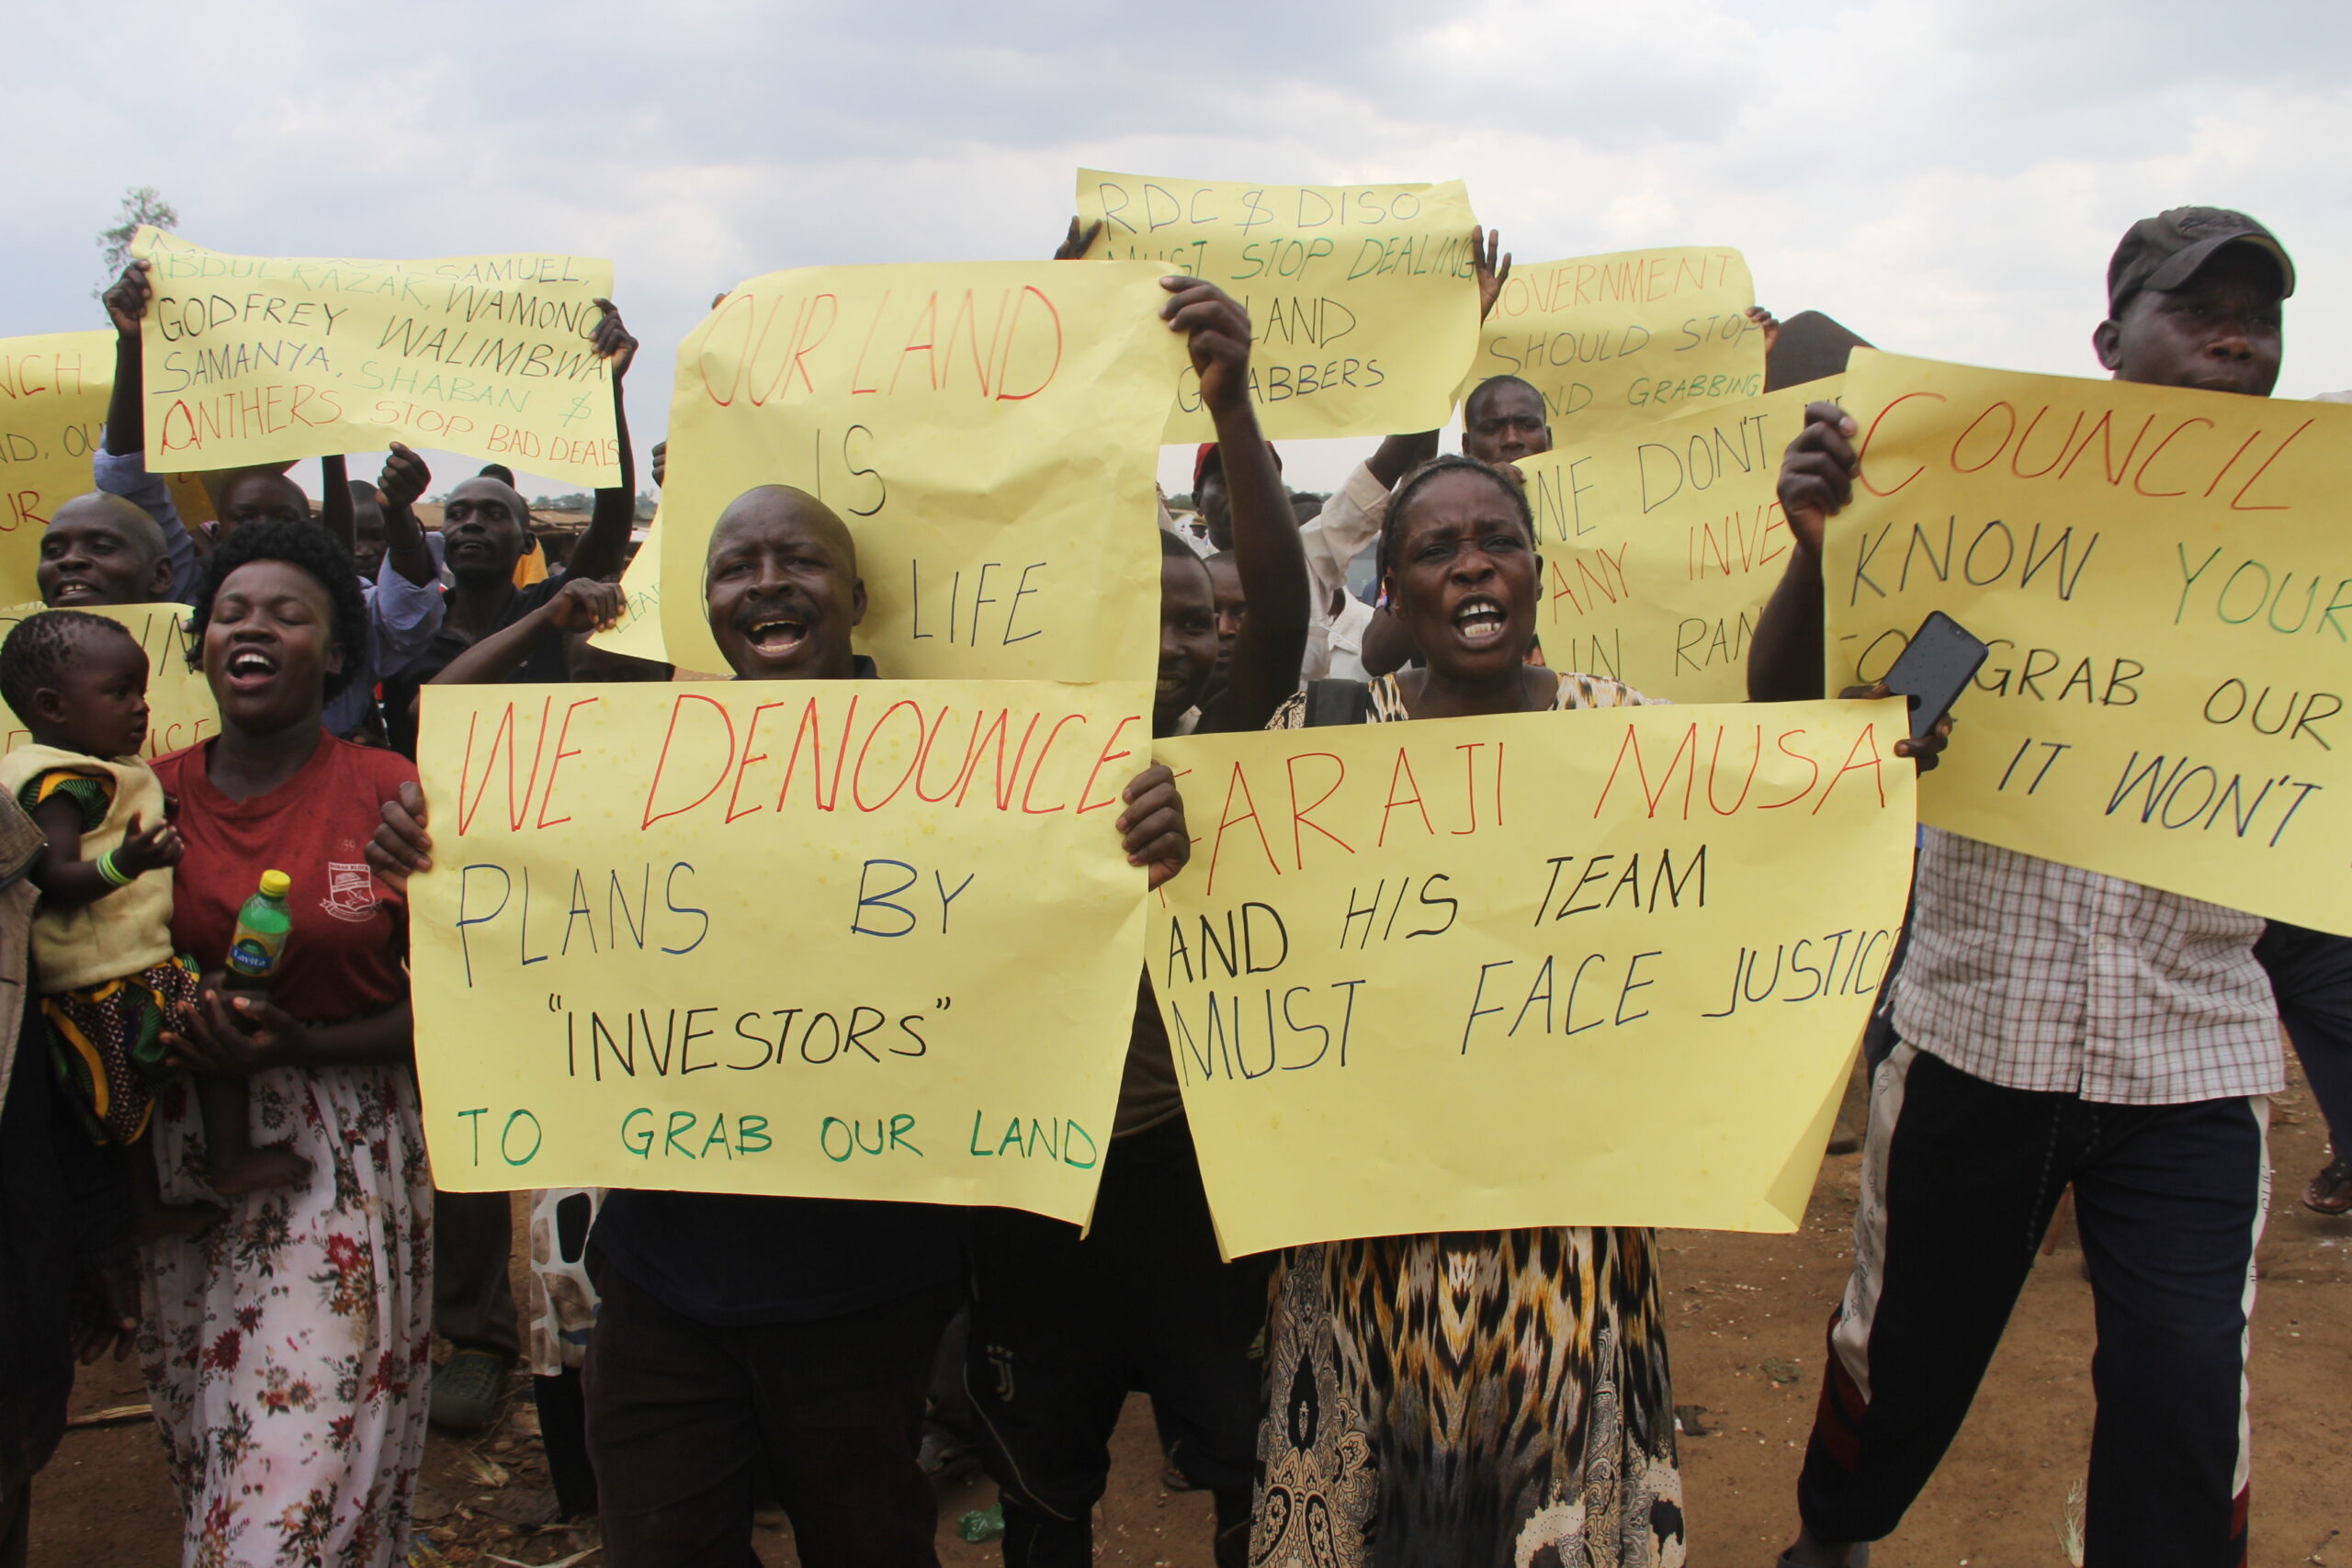 ABDUL RAZAK, SAMUEL,
WAMONO
GODFREY WALIMBWA
SAMANYA, SHABAN $
ONTHERS STOP BAD DEALS
OUR LAND
IS
LIFE
RDC $ DISO
MUST STOP DEALING
LAND
GRABBERS
GOVERNMENT
SHOULD STOP
GRABBING
WE DON'T
ANY INVE
IN RAN
COUNCIL
KNOW YOUR
GRAB OUR
IT WON'T
WE DENOUNCE
PLANS BY
"INVESTORS"
TO GRAB OUR LAND
FARAJI MUSA
AND HIS TEAM
MUST FACE JUSTICE
Lavita